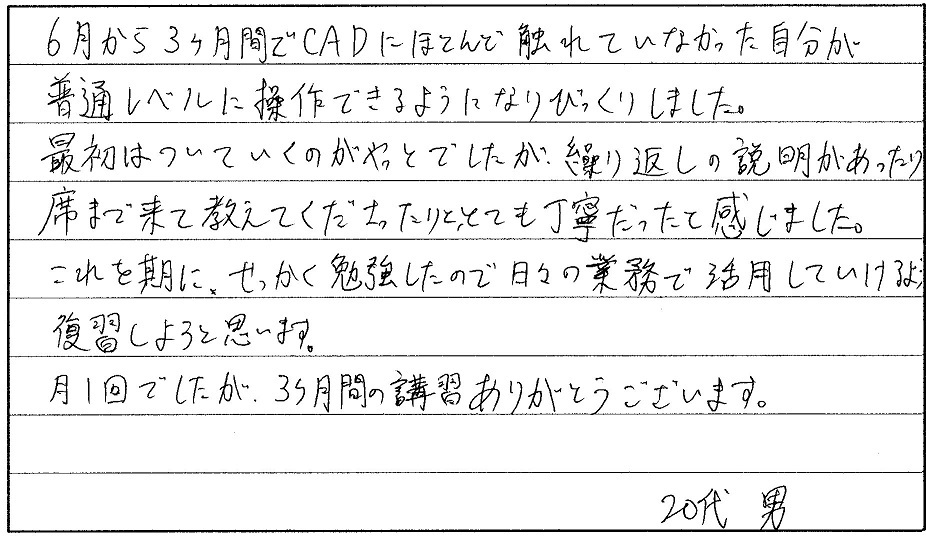 6月から3ヶ月間でCADにほとんど触れていなかった自分が
普通レベルに操作できるようになりびっくりしました。
最初はついていくのがやっとでしたが、繰り返しの説明があったり
席まで来て教えてくださったりと、とても丁寧だったと感じました。
これを期に、せっかく勉強したので日々の業務で活用していけるよう
復習しようと思います。
月1回でしたが、3ヶ月間の講習ありがとうございます。
20代 男